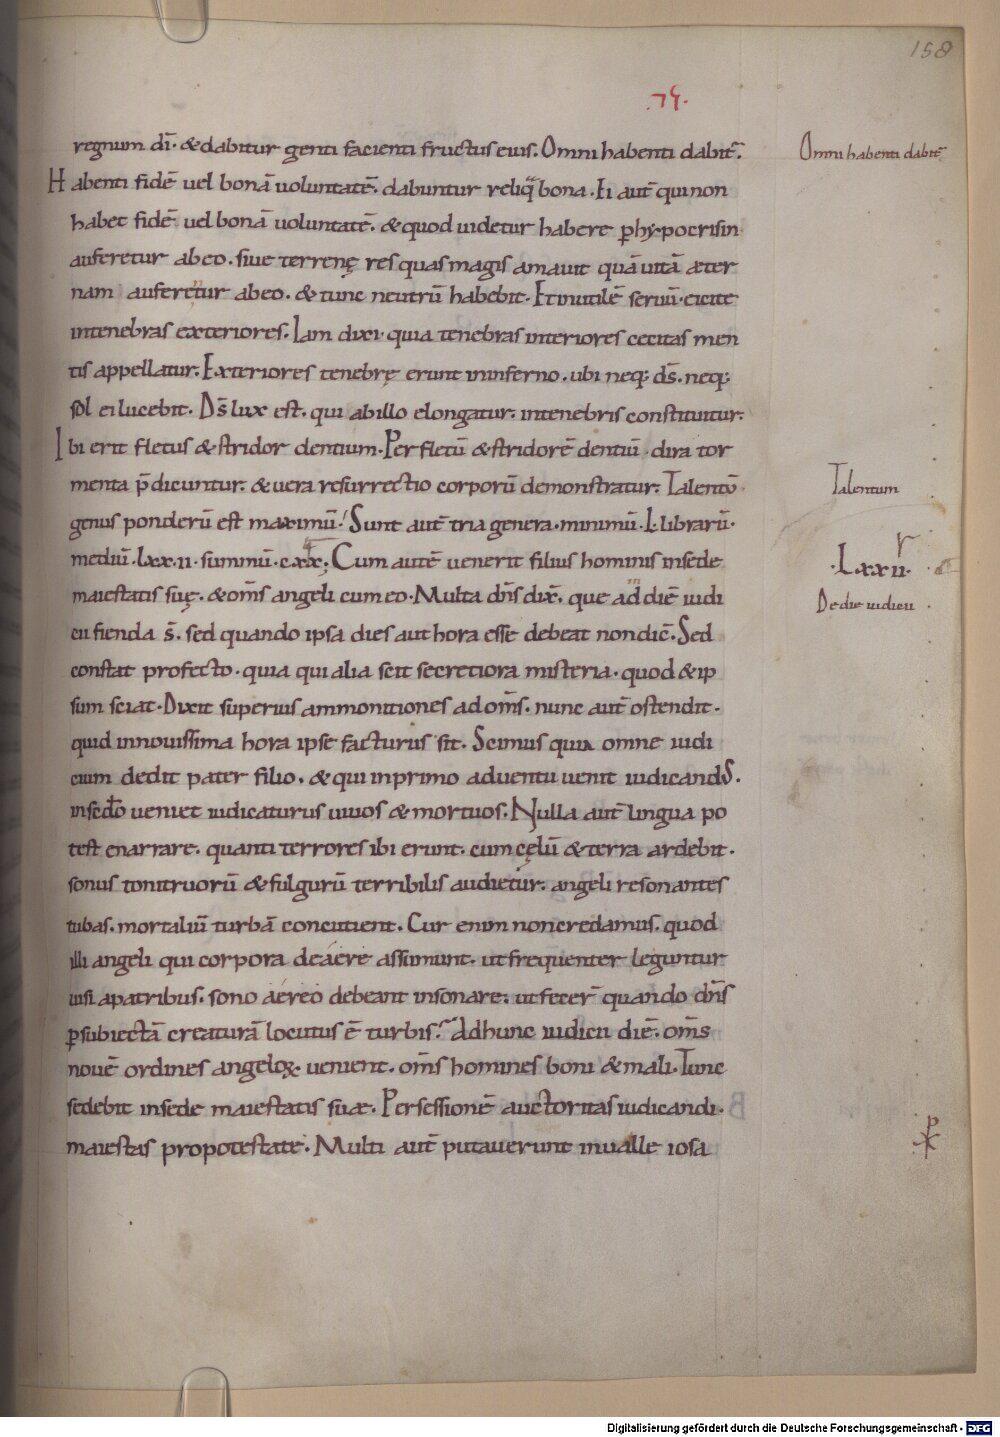 158
regnum dī· &dabitur genti facienti fructus eius. Omni habenti dabit̄.
Omni habenti dabit̄
Habenti fidē uel bonā uoluntatē. dabuntur reliq̄ bona. Ei aut̄ qui non
habet fidē uel bonā uoluntatē. &quod uidetur habere p̲hy·pocrisin·
auferetur abeo. siue terrenę res quas magis amauit quā uitā æter
nam auferetur abeo. &tunc neutrū habebit. Et inutilē seruū· eicite
intenebras exteriores. Iam dixi· quia tenebras interiores cecitas men
tis appellatur. Exteriores tenebrę erunt ininferno. ubi neq; d̄s. neq;
sol ei lucebit. D̄s lux est. qui abillo elongatur. intenebris constituitur.
Ibi erit fletus &stridor dentium. Per fletū &stridorē dentiū· dira tor
menta p̄dicuntur. &uera resurrectio corporū demonstratur. Talentū·
Talentum
genus ponderū est maximū. Sunt aut̄ tria genera· minimū· L· librarū·
mediū· Lxx·ii· summū· c·xx· Cum autē uenerit filius hominis insede
·Lxxii·
r
maiestatis suę. &om̄s angeli cum eo. Multa dn̄s dix̄. que ad diē iudi
De die iudicii
cii fienda s̄. sed quando ipsa dies aut hora esse debeat non dic̄. Sed
constat profecto· quia qui alia scit secretiora misteria· quod &ip
sum sciat. Dixit superius ammonitiones ad om̄s. nunc aut̄ ostendit·
quid innouissima hora ipse facturus sit. Scimus quia omne iudi
cium dedit pater filio. &qui inprimo aduentu uenit iudicandus.
insedo ueniet iudicaturus uiuos &mortuos. Nulla aut̄ lingua po
test enarrare. quanti terrores ibi erunt. cum cęlū &terra ardebit.
sonus tonitruorū &fulgurū terribilis audietur. angeli resonantes
tubas. mortaliū turbā concutient. Cur enim non credamus. quod
illi angeli qui corpora deáere assumunt. ut frequenter leguntur
uisi apatribus. sono aéreo debeant insonare. ut fecer̄ quando dn̄s
p̲subiectā creaturā locutus ē turbis. Adhunc iudicii diē. om̄s
nouē ordines angeloꝝ· uenient. om̄s homines boni &mali. Tunc
sedebit insede maiestatis suæ. Per sessionē auctoritas iudicandi.
maiestas propotestate. Multi aut̄ putauerunt inualle iosa